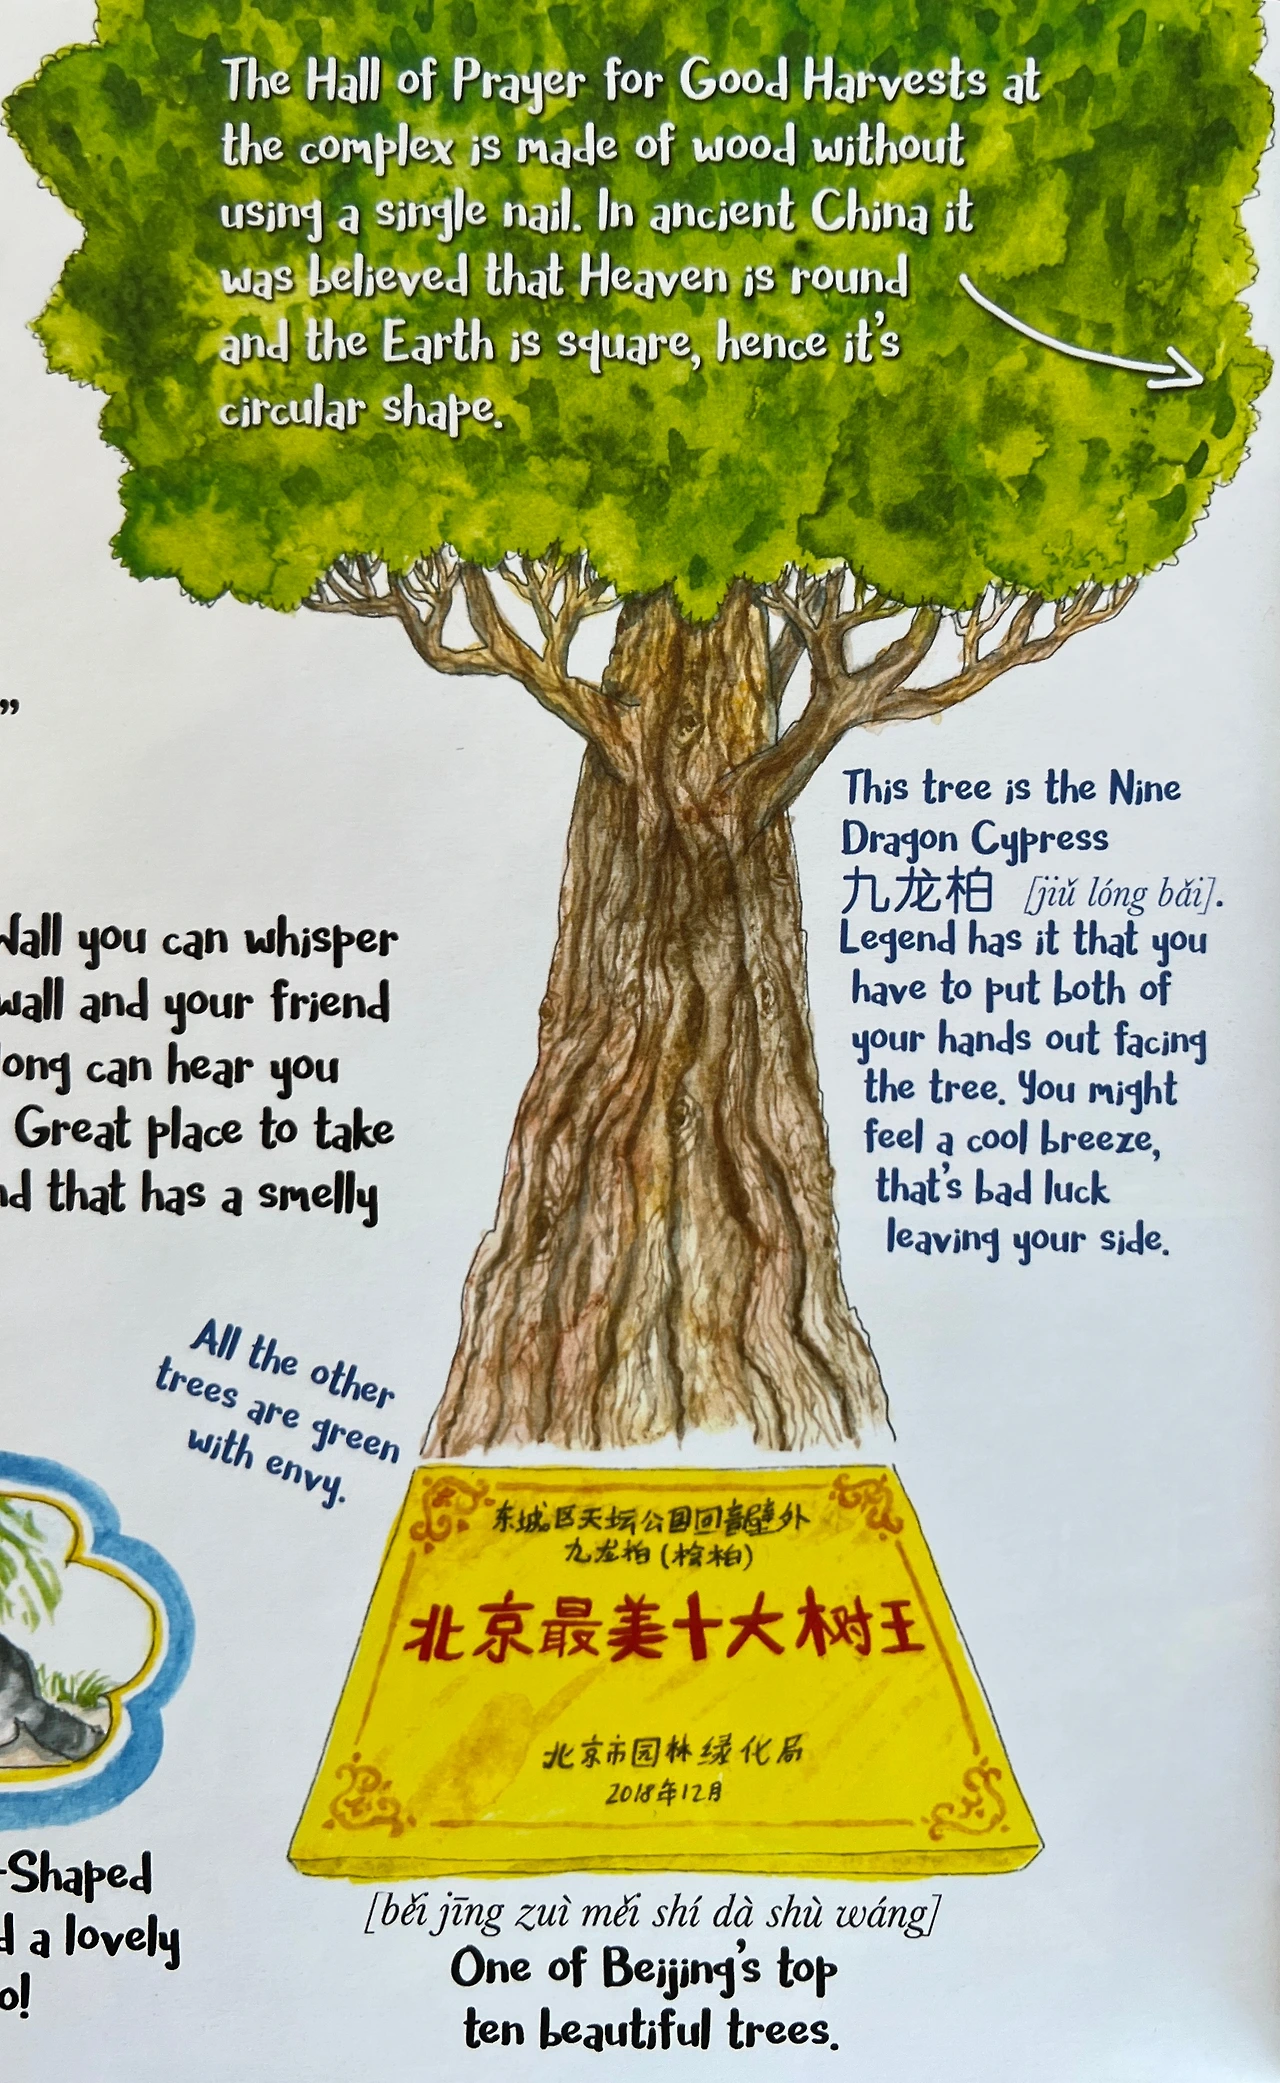 The Hall of Prayer for Good Harvests at
the complex is made of wood without
using a single nail. In ancient China it
was believed that Heaven is round
and the Earth is square, hence it's
circular shape.
”
This tree is the Nine
Dragon Cypress
九龙柏 [jiǔ lóng bǎi].
Legend has it that you
have to put both of
your hands out facing
the tree. You might
feel a cool breeze,
that's bad luck
leaving your side.
Wall you can whisper
wall and your friend
long can hear you
Great place to take
nd that has a smelly
All the other
trees are green
with envy.
东城区天坛公园回音壁外
九龙柏(桧柏)
北京最美十大树王
北京市园林绿化局
2018年12月
[běi jīng zuì měi shí dà shù wáng]
One of Beijing's top
ten beautiful trees.
-Shaped
d a lovely
o!